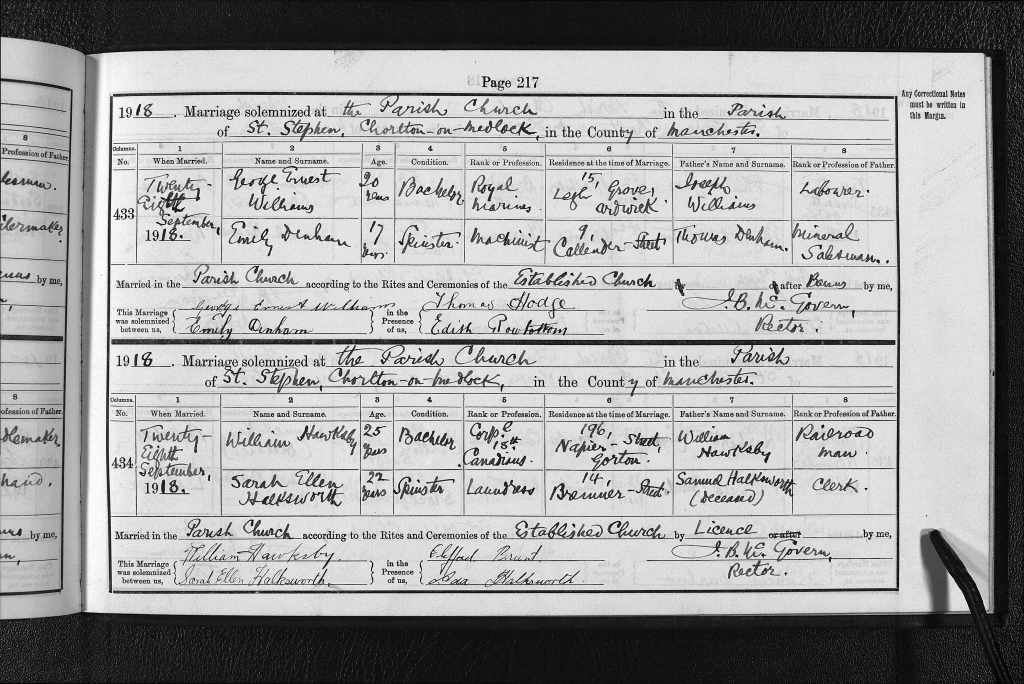 Page 217
Any Correctional Notes
must be written in
this Margin.
1918. Marriage solemnized at the Parish Church in the Parish
of St. Stephen, Chorlton-on-Medlock, in the County of Manchester.
Columns. 1 2 3 4 5 6 7 8
No. When Married. Name and Surname. Age. Condition. Rank or Profession. Residence at the time of Marriage. Father's Name and Surname. Rank or Profession of Father.
433
Twenty-
Eighth
September,
1918.
George Ernest
Williams
20
years
Bachelor
Royal
Marines
15,
Leigh Grove,
Ardwick.
Joseph
Williams
Labourer.
Emily Denham
17
years
Spinster.
Machinist
9,
Callender-Street
Thomas Denham.
Mineral
Salesman.
Married in the Parish Church according to the Rites and Ceremonies of the Established Church by or after Banns by me,
This Marriage
was solemnized
between us,
George Ernest Williams
Emily Denham
in the
Presence
of us,
Thomas Hodge
Edith Rowbottom
J. B. McGovern,
Rector.
1918. Marriage solemnized at the Parish Church in the Parish
of St. Stephen, Chorlton-on-Medlock, in the County of Manchester.
Columns. 1 2 3 4 5 6 7 8
No. When Married. Name and Surname. Age. Condition. Rank or Profession. Residence at the time of Marriage. Father's Name and Surname. Rank or Profession of Father.
434
Twenty-
Eighth
September,
1918.
William Hawksby
25
years
Bachelor
Corpl
18th
Canadians.
196,
Napier-Street,
Gorton.
William
Hawksby
Railroad
man.
Sarah Ellen
Halksworth
22
years
Spinster
Laundress
14,
Street.
Samuel Halksworth
(deceased)
Clerk.
Married in the Parish Church according to the Rites and Ceremonies of the Established Church by Licence or after by me,
This Marriage
was solemnized
between us,
William Hawksby.
Sarah Ellen Halksworth.
in the
Presence
of us,
Clifford
Ada Halksworth.
J. B. McGovern,
Rector.
8
Profession of Father.
by me,
8
Profession of Father.
by me,